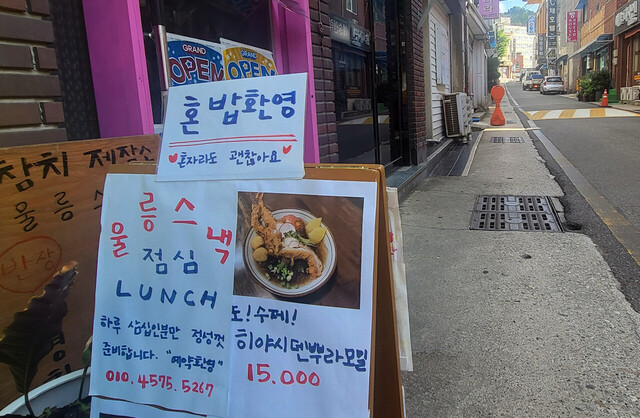 GRAND
OPEN
GRAND
OPEN
혼밥환영
혼자라도 괜찮아요
참치 제작소
울릉
반상
울릉스낵
점심
LUNCH
하루 삼십인분만 정성껏
준비합니다. "예약환영"
010.4575.5267
도!수제!
히야시덴뿌라모밀
15.000